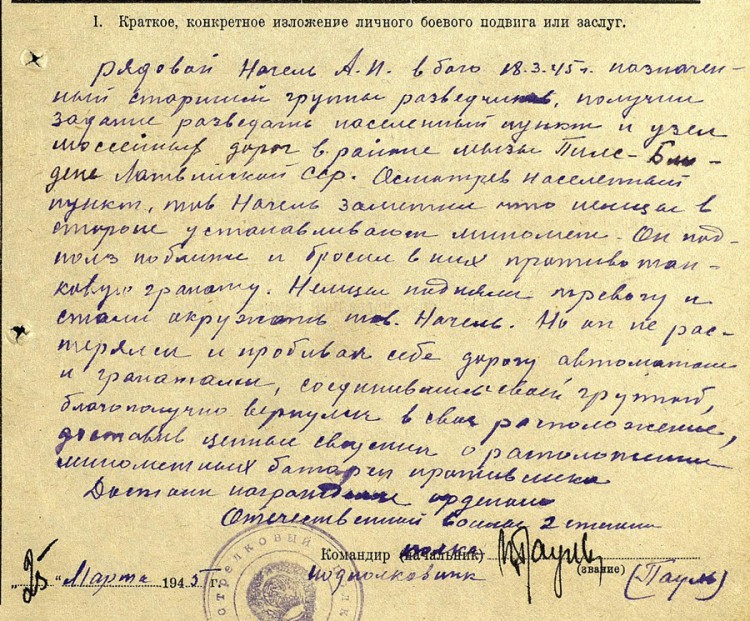 I. Краткое, конкретное изложение личного боевого подвига или заслуг.
рядовой Ночель А.И. в бою 18.3.45 г. назначен-
ный старшим группы разведчиков, получил
задание разведать населенный пункт и узел
шоссейных дорог в районе мызы Пилс-Бли-
дене Латвийской ССР. Осмотрев населенный
пункт, тов Ночель заметил что немцы в
стороне устанавливают миномет. Он под-
полз поближе и бросил в них противотан-
ковую гранату. Немцы подняли тревогу и
стали окружать тов. Ночель. Но он не рас-
терялся и пробивая себе дорогу автоматом
и гранатами, соединившись своей группой,
благополучно вернулся в свое расположение,
доставив ценные сведения о расположении
минометных батарей противника
Достоин награждения орденом
Отечественной войны 2 степени
Командир (начальник) полка
подполковник
(звание)
(Пауль)
„25" Марта 1945 г.
СТРЕЛКОВЫЙ